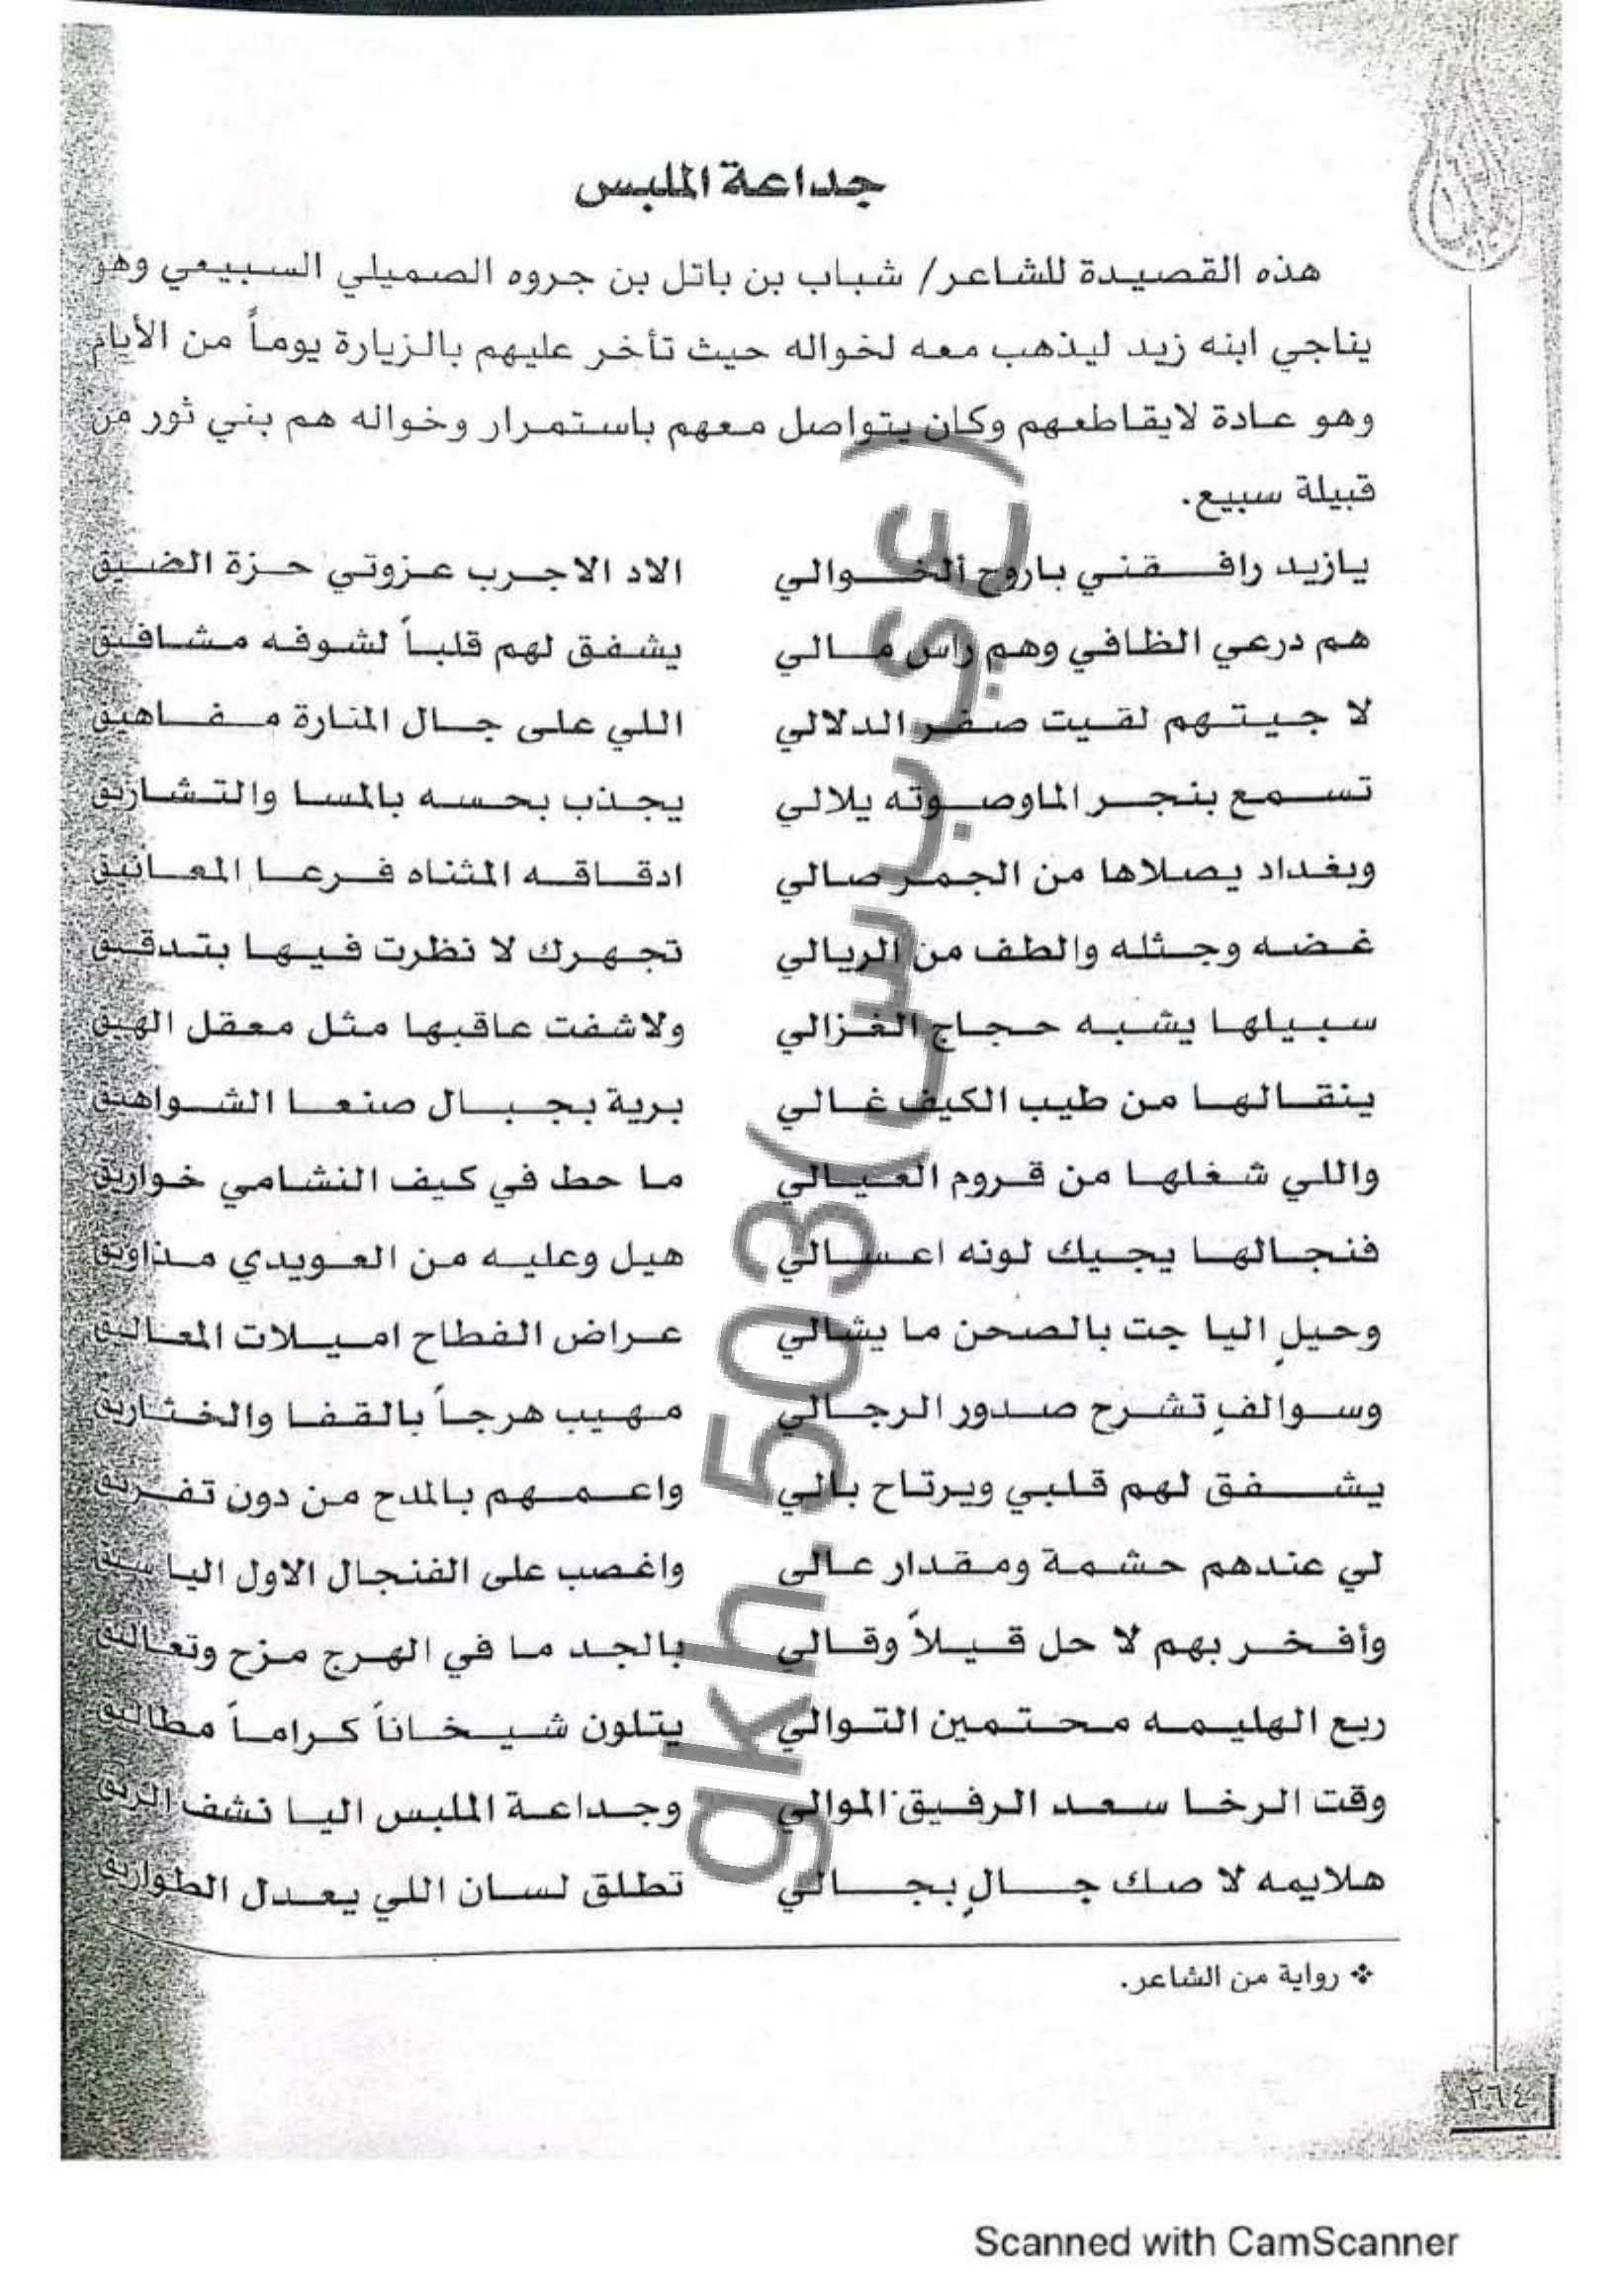 جداعة الملبس
هذه القصيدة للشاعر/ شباب بن باتل بن جروه الصميلي السبيعي وهو
يناجي ابنه زيد ليذهب معه لخواله حيث تأخر عليهم بالزيارة يوماً من الأيام
وهو عادة لايقاطعهم وكان يتواصل معهم باستمرار وخواله هم بني ثور من
قبيلة سبيع.
يازيد رافقني باروح ألخوالي الاد الاجرب عزوتي حزة الضيق
هم درعي الظافي وهم راس مالي يشفق لهم قلباً لشوفه مشافيق
لا جيتهم لقيت صفر الدلالي اللي على جال المنارة مفاهيق
تسمع بنجر الماوصوته يلالي يجذب بحسه بالمسا والتشاريق
وبغداد يصلاها من الجمر صالي ادقاقه المثناه فرعا المعانيق
غضه وجثله والطف من الريالي تجهرك لا نظرت فيها بتدقيق
سبيلها يشبه حجاج الغزالي ولاشفت عاقبها مثل معقل الهيق
ينقالها من طيب الكيف غالي برية بجبال صنعا الشواهيق
واللي شغلها من قروم العيالي ما حط في كيف النشامي خواريق
فنجالها يجيك لونه اعسالي هيل وعليه من العويدي مذاويق
وحيلٍ اليا جت بالصحن ما يشالي عراض الفطاح اميلات المعاليق
وسوالفٍ تشرح صدور الرجالي مهيب هرجاً بالقفا والخثاريق
يشفق لهم قلبي ويرتاح بالي واعمهم بالمدح من دون تفريق
لي عندهم حشمة ومقدار عالي واغصب على الفنجال الاول اليا
وأفخر بهم لا حل قيلاً وقالي بالجد ما في الهرج مزح وتعاليق
ربع الهليمه محتمين التوالي يتلون شيخاناً كراماً مطاليق
وقت الرخا سعد الرفيق الموالي وجداعة الملبس اليا نشف الريق
هلايمه لا صك جالٍ بجالي تطلق لسان اللي يعدل الطواريق
❖ رواية من الشاعر.
٢٦٤
gkh.503(سبيعي)
Scanned with CamScanner